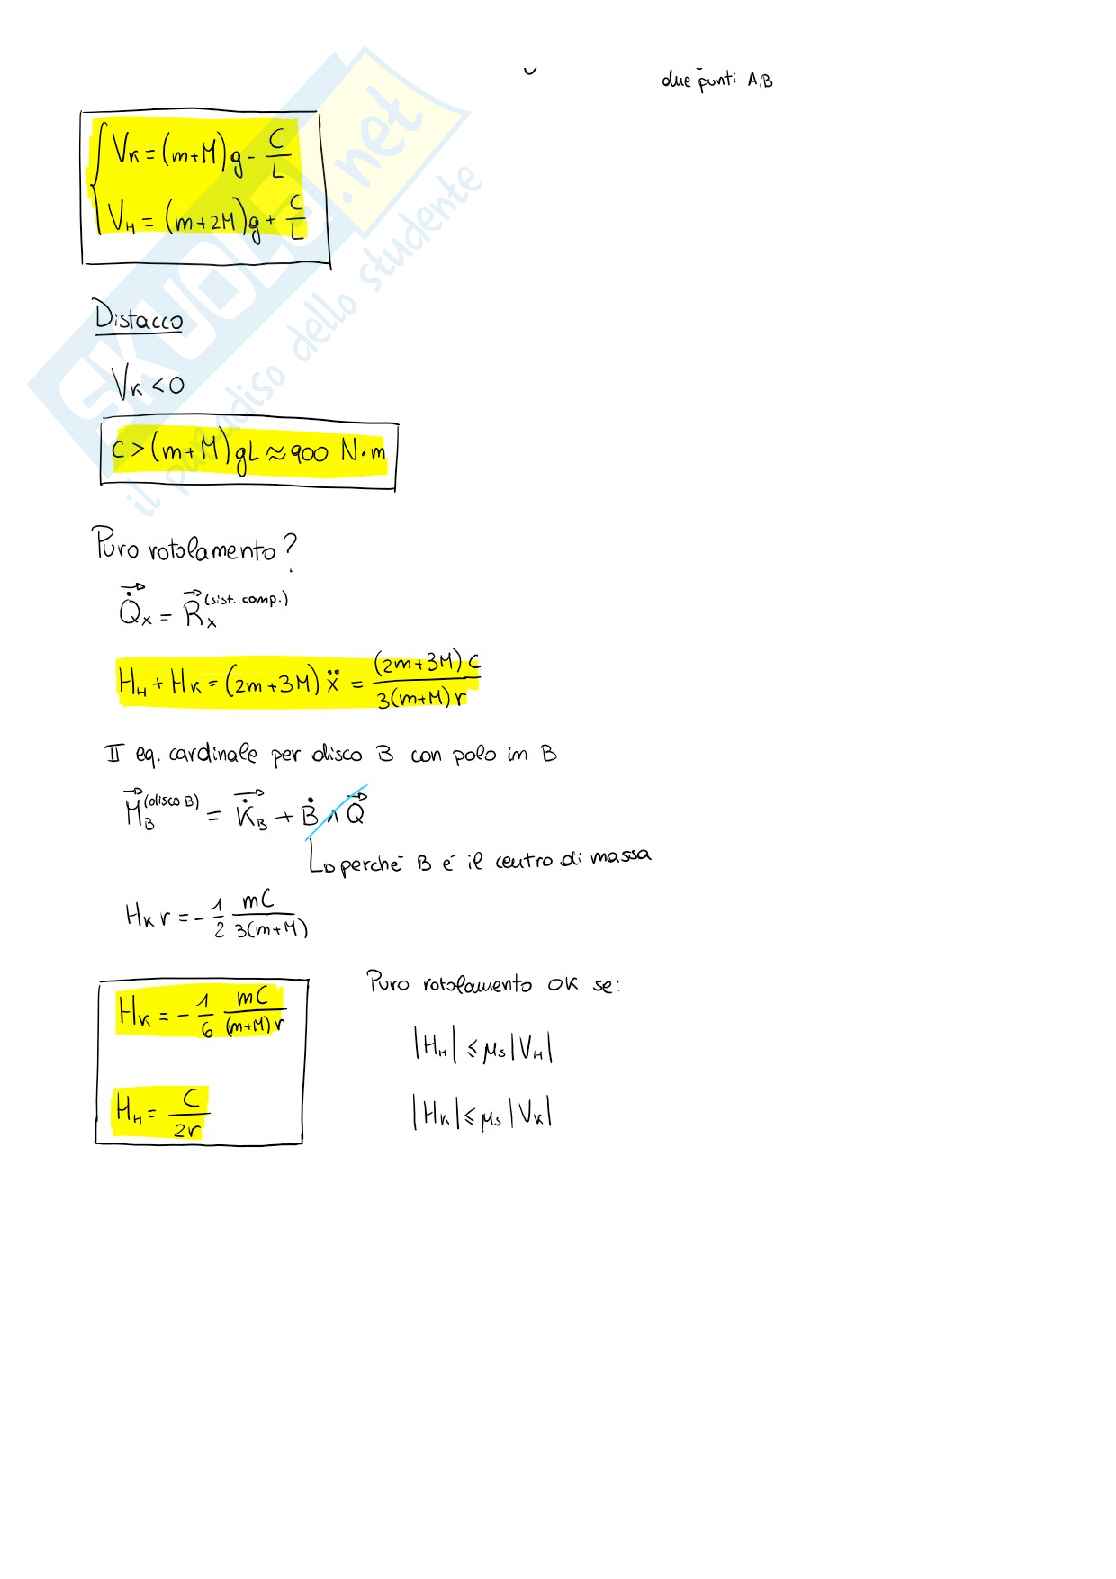 due punti A,B
V_K = (m+M)g - C/L
V_H = (m+2M)g + C/L
Distacco
V_K < 0
C > (m+M)gL ≈ 900 N·m
Puro rotolamento?
Q̇_x = R_x^(sist. comp.)
H_H + H_K = (2m+3M)ẍ = (2m+3M)C / 3(m+M)r
II eq. cardinale per disco B con polo in B
M_B^(disco B) = K̇_B + Ḃ ∧ Q
↳ perché B é il centro di massa
H_K r = - 1/2 mC / 3(m+M)
H_K = - 1/6 mC / (m+M)r
H_H = C / 2r
Puro rotolamento OK se:
|H_H| ≤ μ_s |V_H|
|H_K| ≤ μ_s |V_K|
SKUOLA.net
il paradiso dello studente